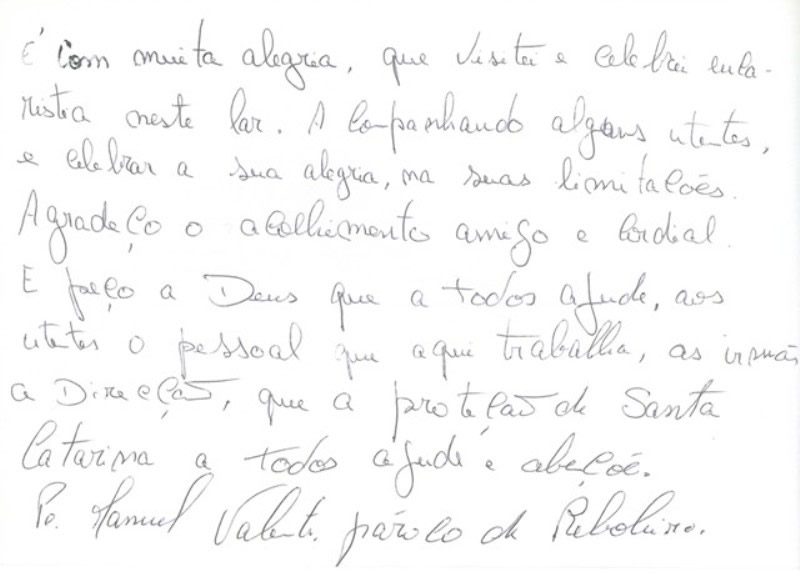 É com muita alegria, que visitei e celebrei euca-
ristia neste lar. A companhando alguns utentes,
e celebrar a sua alegria, na suas limitações.
Agradeço o acolhimento amigo e cordial.
E peço a Deus que a todos ajude, aos
utentes o pessoal que aqui trabalha, as irmãs
a Direcção, que a proteção de Santa
Catarina a todos ajude e abeçõe.
Pe. Manuel Valente, pároco de Reboleiro.